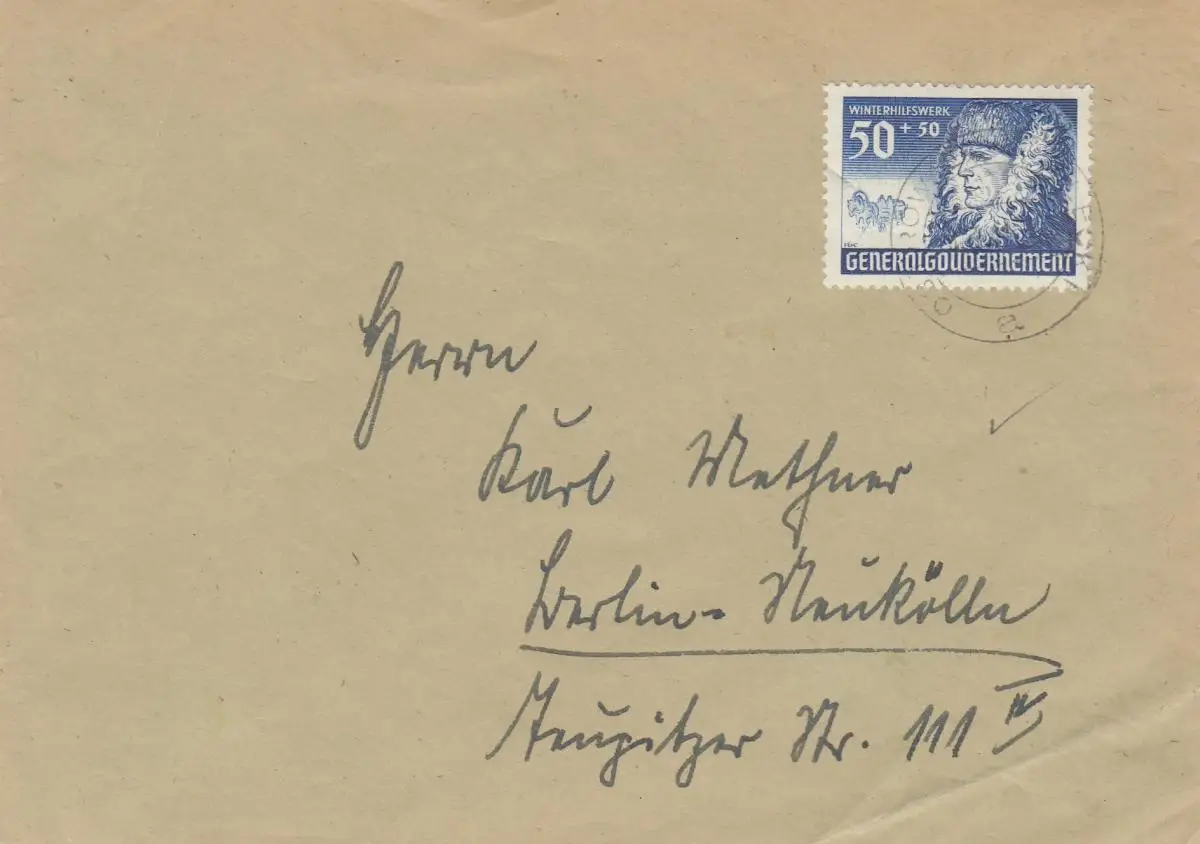 WINTERHILFSWERK
50 + 50
GENERALGOUVERNEMENT
a
Herrn
Karl Methner
Berlin-Neukölln
Teupitzer Str. 111 IV